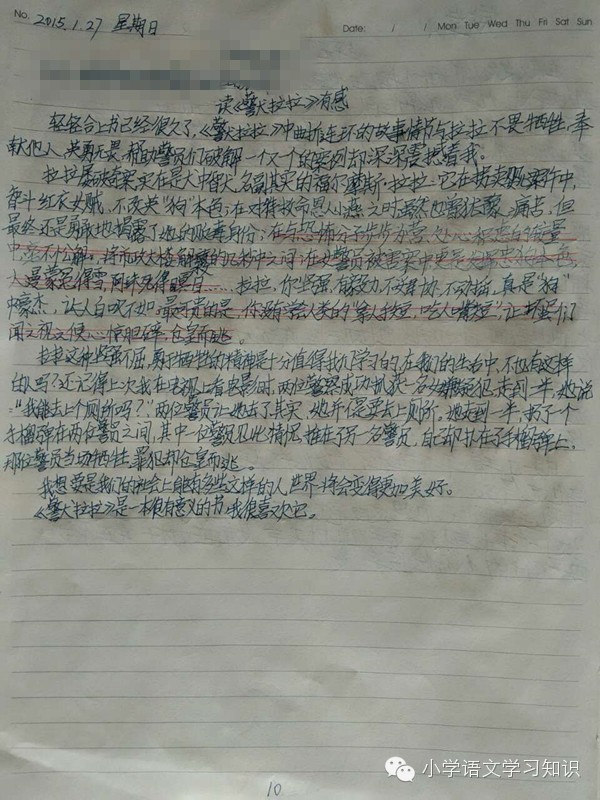 No.
2015.1.27 星期日
Date: / / Mon Tue Wed Thu Fri Sat Sun
读《警犬拉拉》有感
轻轻合上书已经很久了,《警犬拉拉》中曲折连环的故事情节与拉拉不畏牺牲,奉
献他人,英勇无畏,帮助警员们破解一个又一个的案例却深深震撼着我。
拉拉屡破奇案,实在是犬中智犬,名副其实的福尔摩斯·拉拉:它在拐卖
智斗红衣女贼,不改其"狗"本色;在对待救命恩人小燕之时虽然也曾犹豫、痛苦,但
最终还是勇敢地揭露了她的贩毒身份;在与恐怖分子步步为营
中,
拉拉,你坚强,有毅力,不妥协,不动摇,真是"狗"
中豪杰,让人自叹不如,最可贵的是,你没有学会人类的"拿人手短,吃人嘴短",让坏蛋们
闻之视之便心惊胆碎,仓皇而逃。
拉拉这种坚强不屈,勇于牺牲的精神是十分值得我们学习的,在我们的生活中,不也有这样
的人吗?还记得上次我在电视上看电影时,两位警察成功抓获一名女嫌疑犯,走到一半,她说
:"我能去上个厕所吗?"两位警员让她去了,其实,她并不是要去上厕所,她走到一半,扔了一个
手榴弹在两位警员之间,其中一位警员见此情况,推在了另一名警员,自己却扑在了手榴弹上,
那位警员当场牺牲,罪犯却仓皇而逃。
我想,要是我们的社会上能有多些这样的人,世界将会变得更加美好。
《警犬拉拉》是一本很有意义的书,我很喜欢它。
10
小学语文学习知识